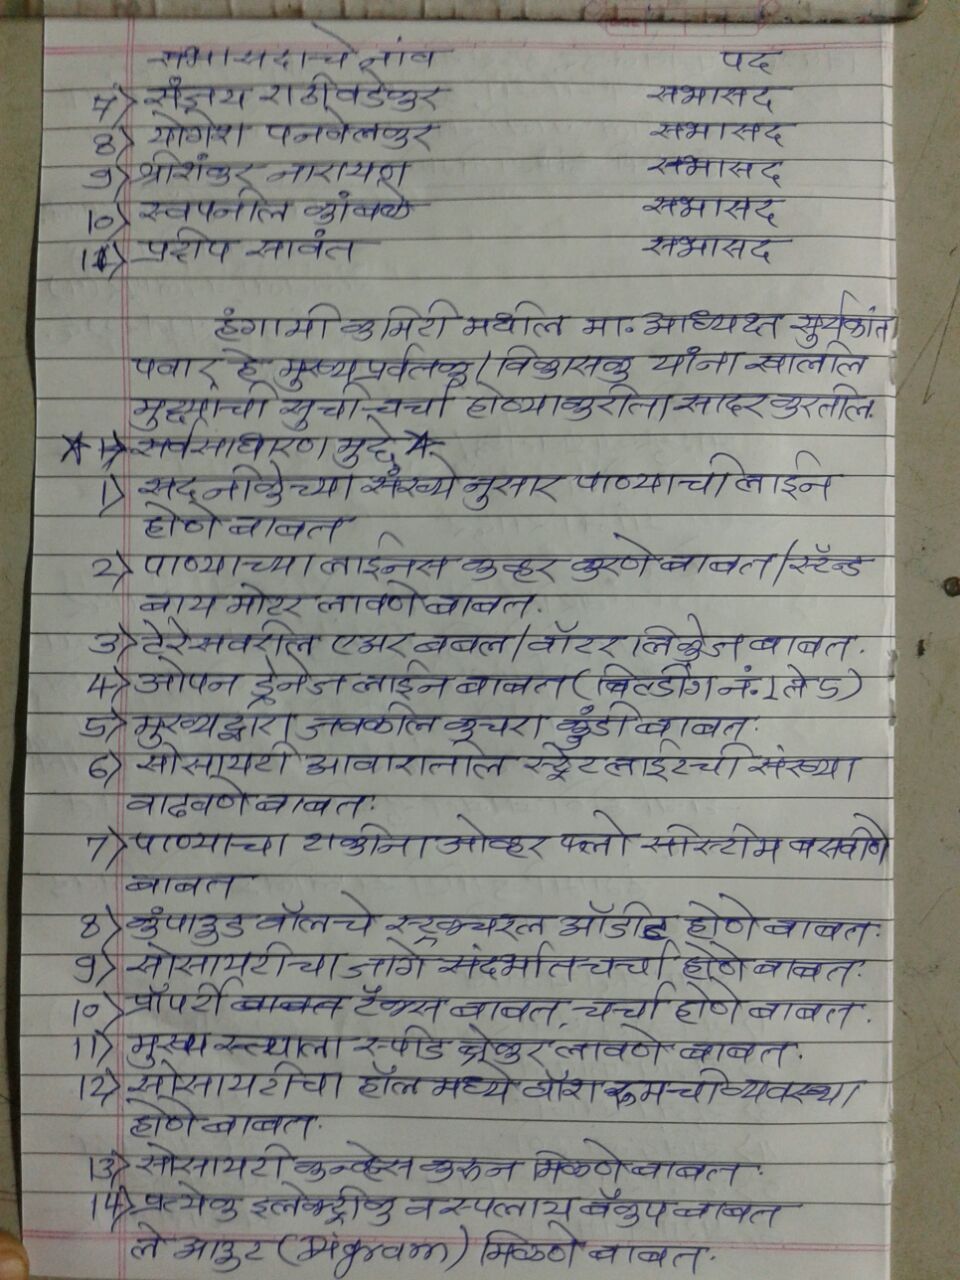 सभासदाचे नांव पद
7) संजय राठीवडेकर सभासद
8) योगेश पनवेलकर सभासद
9) श्रीशंकर नारायण सभासद
10) स्वपनील कांबळे सभासद
11) प्रदीप सावंत सभासद
हंगामी कमिटी मधील मा. अध्यक्ष सुर्यकांत
पवार हे मुख्य प्रर्वतक / विकासक यांना खालील
मुद्द्याची सुची चर्चा होण्याकरीता सादर करतील.
* 1) सर्वसाधारण मुद्दे *
1) सदनीकेच्या संख्येनुसार पाण्याची लाईन
होणे बाबत
2) पाण्याच्या लाईनस कव्हर करणे बाबत / स्टॅन्ड
बाय मोटर लावणे बाबत.
3) टेरेसवरील एअर बबल / वॉटर लिकेज बाबत.
4) ओपन ड्रेनेज लाईन बाबत (बिल्डींग नं. 1 ते 5)
5) मुख्यद्वारा जवळील कचरा कुंडी बाबत.
6) सोसायटी आवारातील स्ट्रेट लाईटची संख्या
वाढवणे बाबत.
7) पाण्याचा टाकीना ओव्हर फ्लो सीस्टीम बसवीणे
बाबत
8) कुंपाउड वॉलचे स्ट्रक्चरल ऑडीट होणे बाबत.
9) सोसायटीचा जागे संदर्भात चर्चा होणे बाबत.
10) प्रॉपर्टी टॅक्स बाबत, चर्चा होणे बाबत.
11) मुख्य रस्त्याला स्पीड ब्रेकर लावणे बाबत.
12) सोसायटीचा हॉल मध्ये वॉश रूमची व्यवस्था
होणे बाबत.
13) सोसायटी कन्व्हेस करून मिळणे बाबत.
14) प्रत्येक इलेक्ट्रीक व सप्लाय बॅकप बाबत
ले आउट मिळणे बाबत.